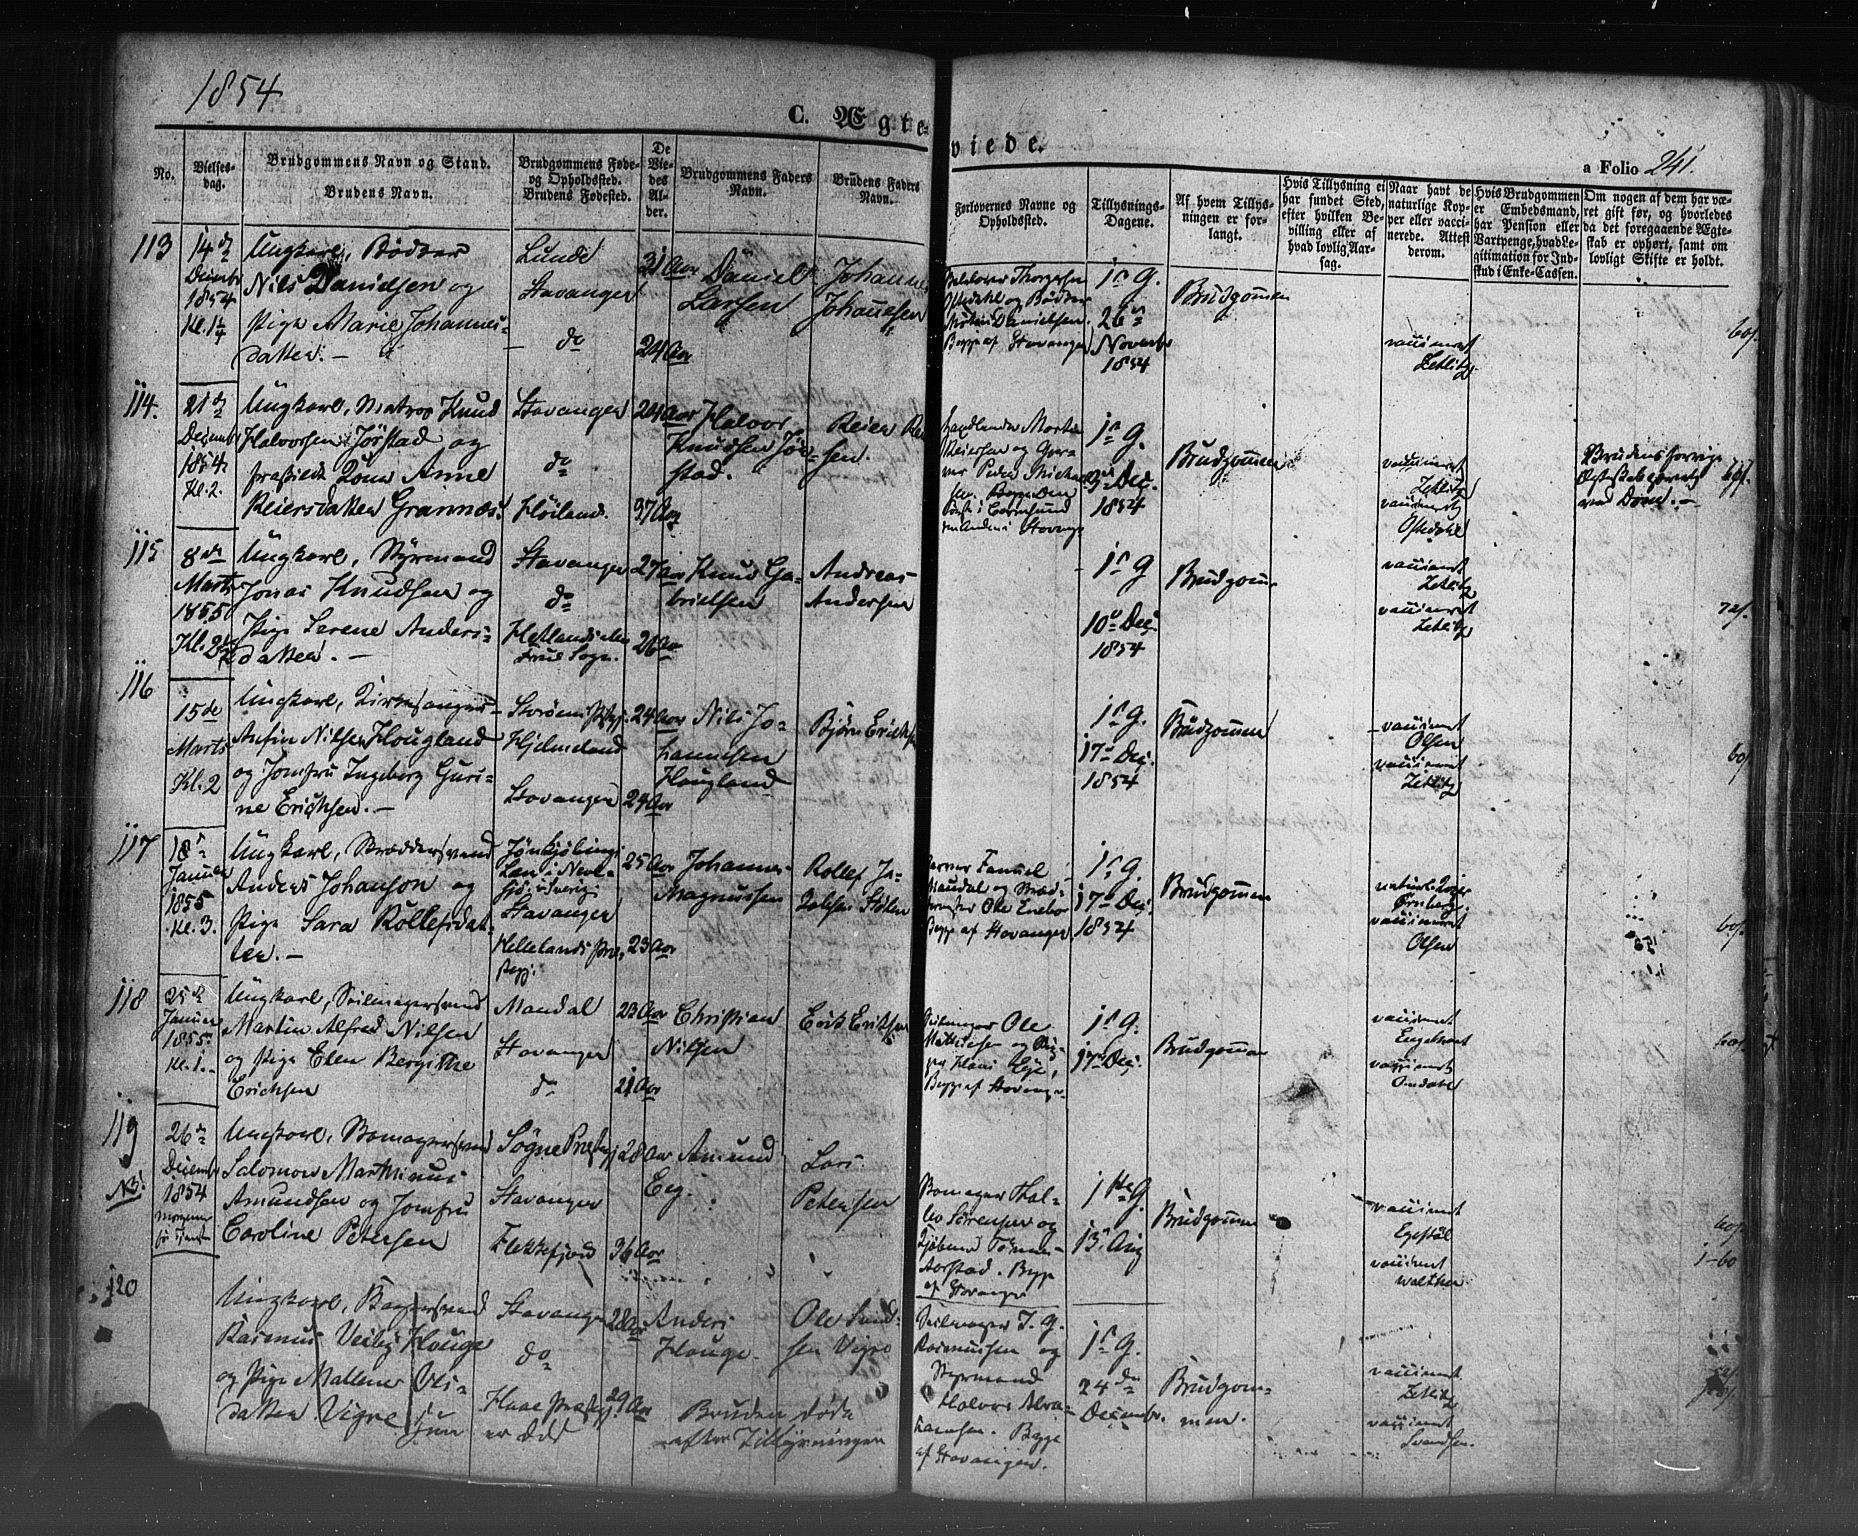 1854
C. Ægte-
viede.
a Folio 241.
No.
Vielses-
dag.
Brudgommens Navn og Stand.
Brudens Navn.
Brudgommens Føde-
og Opholdssted.
Brudens Fødested.
De
Vie-
des
Al-
der.
Brudgommens Faders
Navn.
Brudens Faders
Navn.
Forlovernes Navne og
Opholdssted.
Tillysnings-
Dagene.
Af hvem Tillys-
ningen er for-
langt.
Hvis Tillysning ei
har fundet Sted,
efter hvilken Be-
villing eller af
hvad lovlig Aar-
sag.
Naar havt de
naturlige Kop-
per eller vacci-
nerede. Attest
derom.
Hvis Brudgommen
er Embedsmand,
har Pension eller
Vartpenge, hvad Le-
gitimation for Ind-
skud i Enke-Cassen.
Om nogen af dem har væ-
ret gift før, og hvorledes
da det foregaaende Ægte-
skab er ophørt, samt om
lovligt Skifte er holdt.
113
14 de
Decembr
1854
Kl. 1¼
Ungkarl, Bødker
Nils Danielsen og
Pige Marie Johannes-
datter. -
Lunde
Stavanger
do
31 Aar
24 Aar
Daniel
Larsen
Johannes
Johannesen
Ostedahl og Bødker
Danielsen.
Begge af Stavanger
1s G.
26de
Novembr
1854
Brudgommen
vaccineret
Zetlitz
60s.
114.
21de
Decembr
1854
Kl. 2.
Ungkarl, Matros Knud
Halvorsen Jørstad og
fraskilte Kone Anne
Reiersdatter Grannes.
Stavanger
do
Høiland.
24 Aar
37 Aar
Halvor
Knudsen Jør-
stad.
Reier Rei-
sen.
Handlende Morten
Reiersen og
Peder
1s G.
3d Dec.
1854
Brudgommen
vaccineret
Zetlitz
vaccineret
Ostedahl
Brudens forrige
Ægteskab ophævet
ved Dom. -
115
8de
Marts
1855
Kl. 2½
Ungkarl, Styrmand
Jonas Knudsen og
Pige Serene Anders-
datter. -
Stavanger
do
Hetlands
Frue Sogn.
27 Aar
26 Aar
Knud Ga-
brielsen
Andreas
Andersen
1s G
10de Dec.
1854
Brudgom-
vaccineret
Zetlitz
vaccineret
Zetlitz
72s.
116
15de
Marts
Kl. 2
Ungkarl, Kirkesanger
Anfin Nilsen Hougland
og Jomfru Ingeborg Guri-
ne Erichsen. -
Storøens Præg.
Hjelmeland
Stavanger
24 Aar
24 Aar
Nils Jo-
hannesen
Hougland
Bjørn Erichsen
1s G.
17de Dec.
1854
Brudgommen
vaccineret
Olsen
vaccineret
Zetlitz
60s
117
18de
Januar
1855
Kl. 3.
Ungkarl, Skræddersvend
Anders Johanson og
Pige Sara Rollefsdat-
ter. -
Jønkjøbings
Len i
Sverig
Stavanger
Hellelands Præ-
stegj.
25 Aar
23 Aar
Johannes
Magnussen
Rollef Ja-
kobsen
Mandal og Skræd-
Ole Enebo
Begge af Stavanger
1s G.
17de Dec.
1854
Brudgommen
naturl. Kopper
vaccineret
Olsen
60s.
118
25de
Januar
1855
Kl. 1. -
Ungkarl, Seilmagersvend
Martin Alfred Nilsen
og Pige Elen Bergitthe
Erichsen
Mandal
Stavanger
do
23 Aar
21 Aar
Christian
Nilsen
Erik Eriksen
Seilmager Ole
Mathiesen og
Begge af Stavanger
1s G.
17de Dec.
Brudgommen
vaccineret
Engelhart
vaccineret
60s.
119
NB!
26de
Decembr
1854
Ungkarl, Bomagersvend
Salomon Marthinus
Amundsen og Jomfru
Caroline Petersen
Søgne Præstegj
Stavanger
Flekkefjord
28 Aar
36 Aar
Amund
Eeg.
Lars
Petersen
Bomager Thal-
Sørensen og
Aarstad. Begge
af Stavanger
1ste G.
13de Aug
Brudgommen
vaccineret
Egestøl
vaccineret
Walther
60s.
1-60
120
Ungkarl, Bagersvend
Rasmus Velby Houge
og Pige Mallene Ols-
datter Vigre
Stavanger
do
Haae Præstegj
er død
28 Aar
29 Aar
Anders
Houge.
Ole Sand-
sen Vigre
Bruden døde
efter Tillysningen
Seilmager I. G.
Rasmussen og
Styrmand
Halvor Abra-
hamsen. Begge
af Stavanger.
1s G.
24de
Decembr.
Brudgom-
men.
vaccineret
Zetlitz
vaccineret
Svendsen.